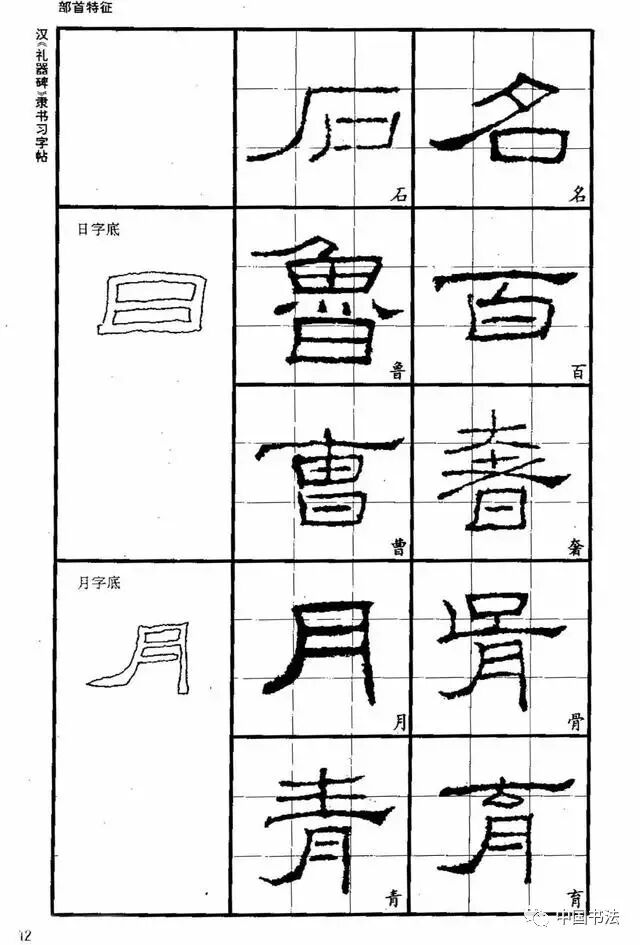 部首特征
汉《礼器碑》隶书习字帖
石 名
石 名
日字底
日 魯 百
鲁 百
曹 奢
曹 奢
月字底
月 月 骨
月 骨
青 育
青 育
12
中国书法